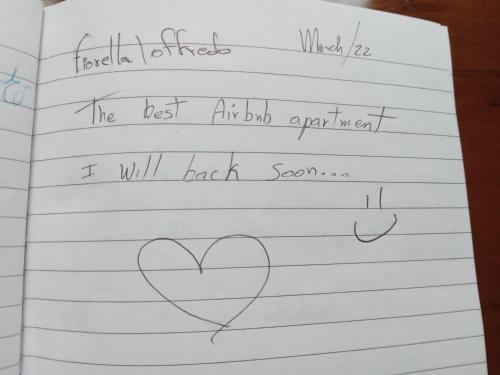 fiorella loffredo March/22
The best Airbnb apartment
I will back soon...